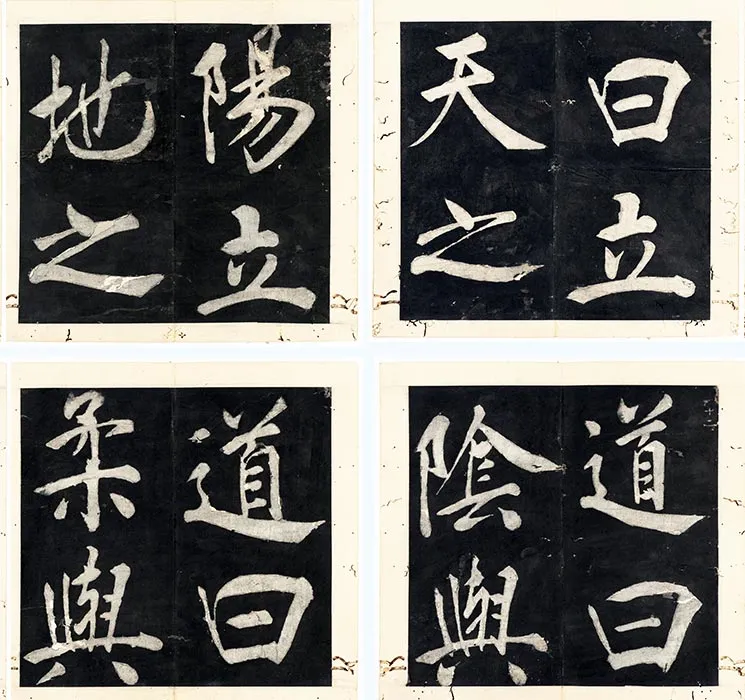 曰立
天之
道曰
陰與
陽立
地之
道曰
柔與